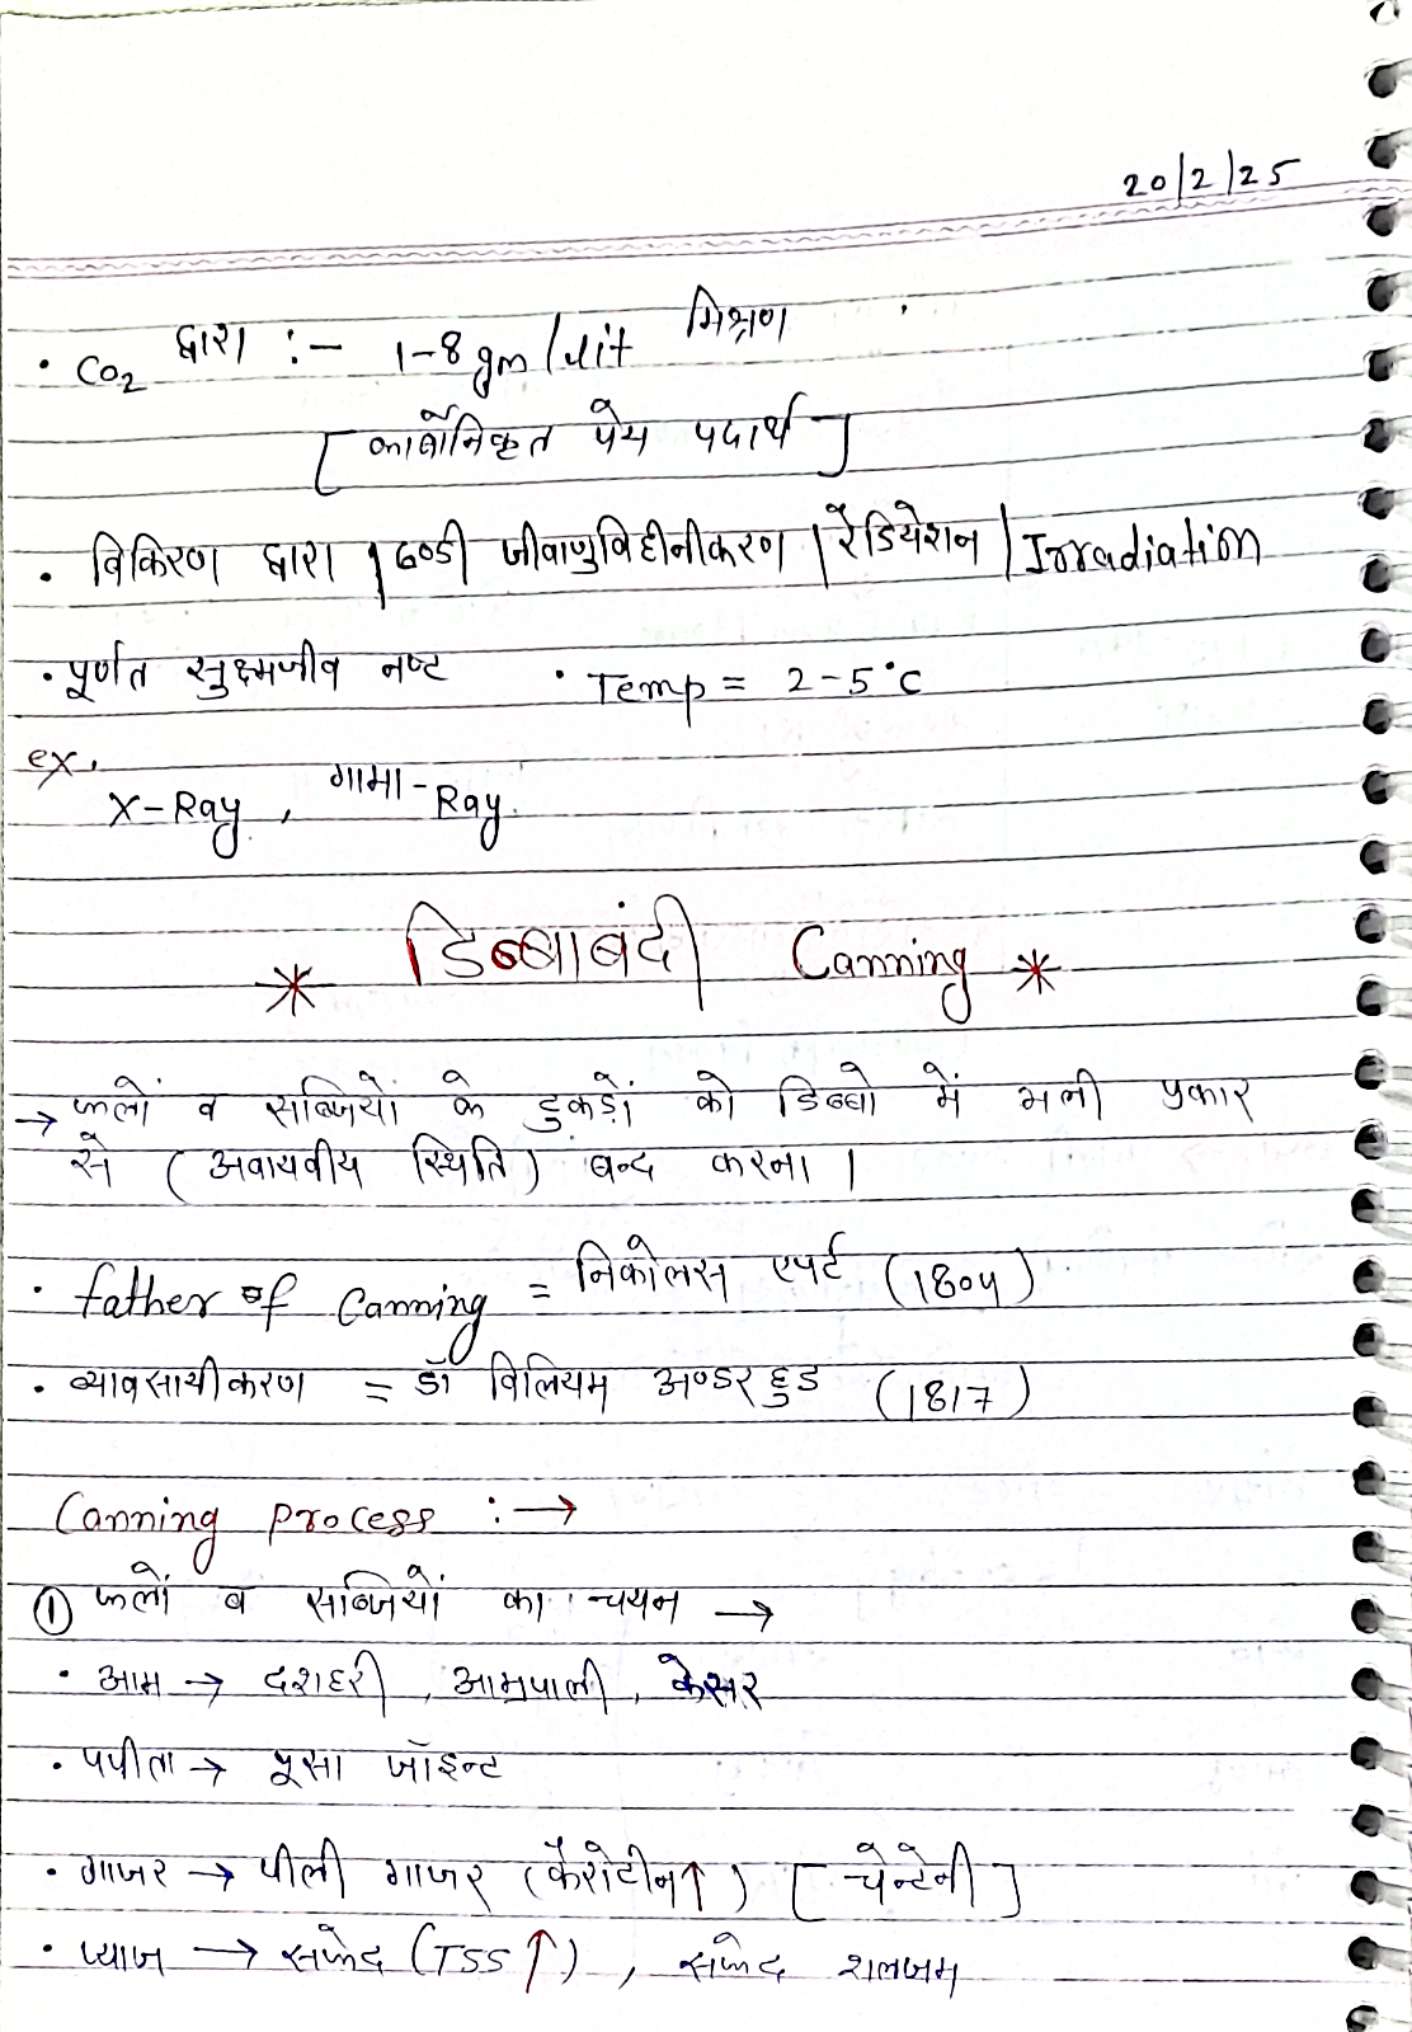 20/2/25
• CO2 द्वारा :- 1-8 gm/lit मिश्रण
[कार्बोनिकृत पेय पदार्थ]
• विकिरण द्वारा / ठण्डी जीवाणुविहीनीकरण / रेडियेशन / Irradiation
• पूर्णत सुक्ष्मजीव नष्ट • Temp = 2-5°C
ex.
X-Ray, गामा-Ray.
* डिब्बाबंदी Canning *
→ फलों व सब्जियों के टुकड़ों को डिब्बो में भली प्रकार
से (अवायवीय स्थिति) बन्द करना ।
• father of Canning = निकोलस एपर्ट (1804)
• व्यावसायीकरण = डॉ विलियम अण्डरहुड (1817)
Canning process :→
① फलों व सब्जियों का चयन →
• आम → दशहरी, आम्रपाली, केसर
• पपीता → पूसा जॉइन्ट
• गाजर → पीली गाजर (कैरोटीन↑) [चेन्टेनी]
• प्याज → सफेद (TSS↑), सफेद शलजम